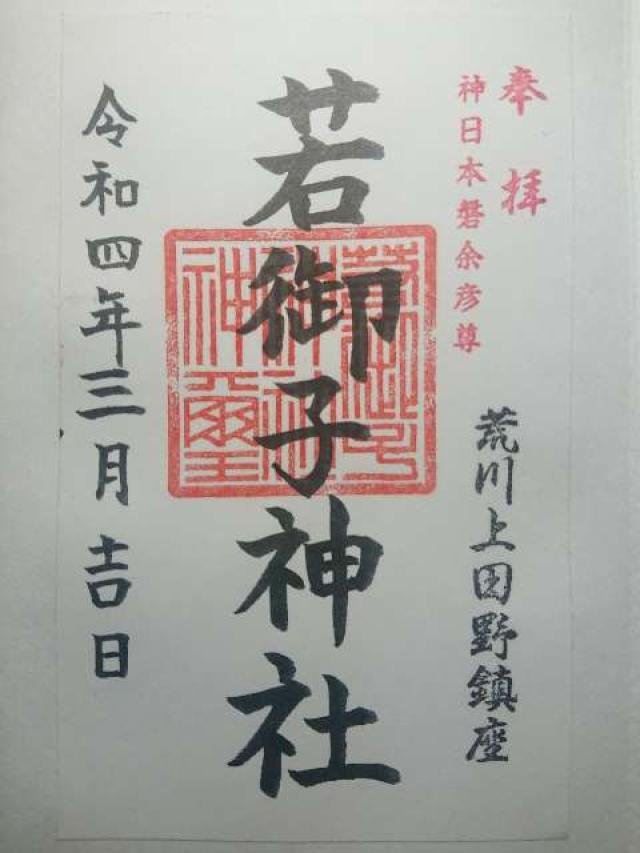 奉拝
神日本磐余彦尊
荒川上田野鎮座
若御子神社
若御子
神社
神璽
令和四年三月吉日